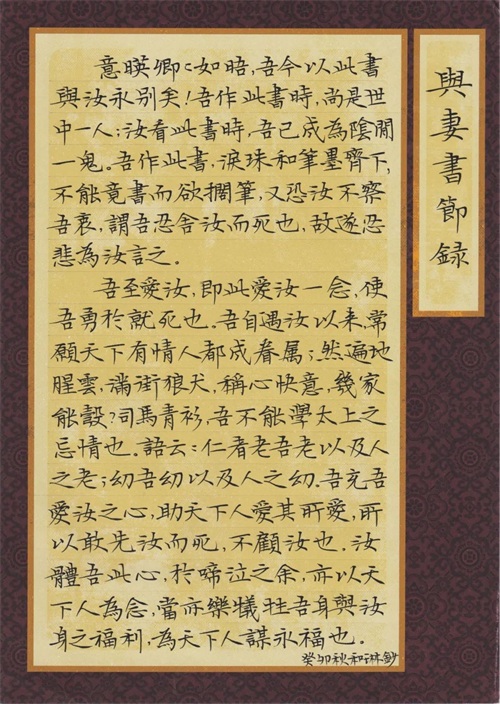 與妻書節録
意暎卿〻如晤，吾今以此書
與汝永别矣！吾作此書時，尚是世
中一人；汝看此書時，吾已成為陰間
一鬼。吾作此書，淚珠和筆墨齊下，
不能竟書而欲擱筆，又恐汝不察
吾衷，謂吾忍舍汝而死也，故遂忍
悲為汝言之。
吾至愛汝，即此愛汝一念，使
吾勇於就死也。吾自遇汝以来，常
願天下有情人都成眷属；然遍地
腥雲，滿街狼犬，稱心快意，幾家
能彀？司馬青衫，吾不能學太上之
忘情也。語云：仁者老吾老以及人
之老；幼吾幼以及人之幼。吾充吾
愛汝之心，助天下人愛其所愛，所
以敢先汝而死，不顧汝也。汝
體吾此心，於啼泣之余，亦以天
下人為念，當亦樂犧牲吾身與汝
身之福利，為天下人謀永福也。
癸卯秋和琳鈔